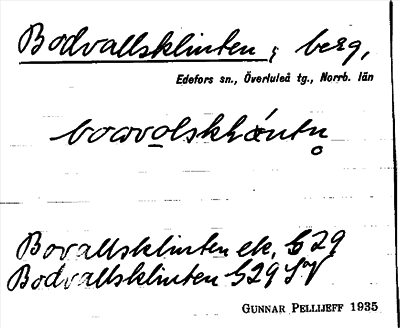 Bodvallsklinten, berg,
Edefors sn., Överluleå tg., Norrb. län
Bovallsklinten ek. G 29
Bodvallsklinten G 29 SV
GUNNAR PELLIJEFF 1935